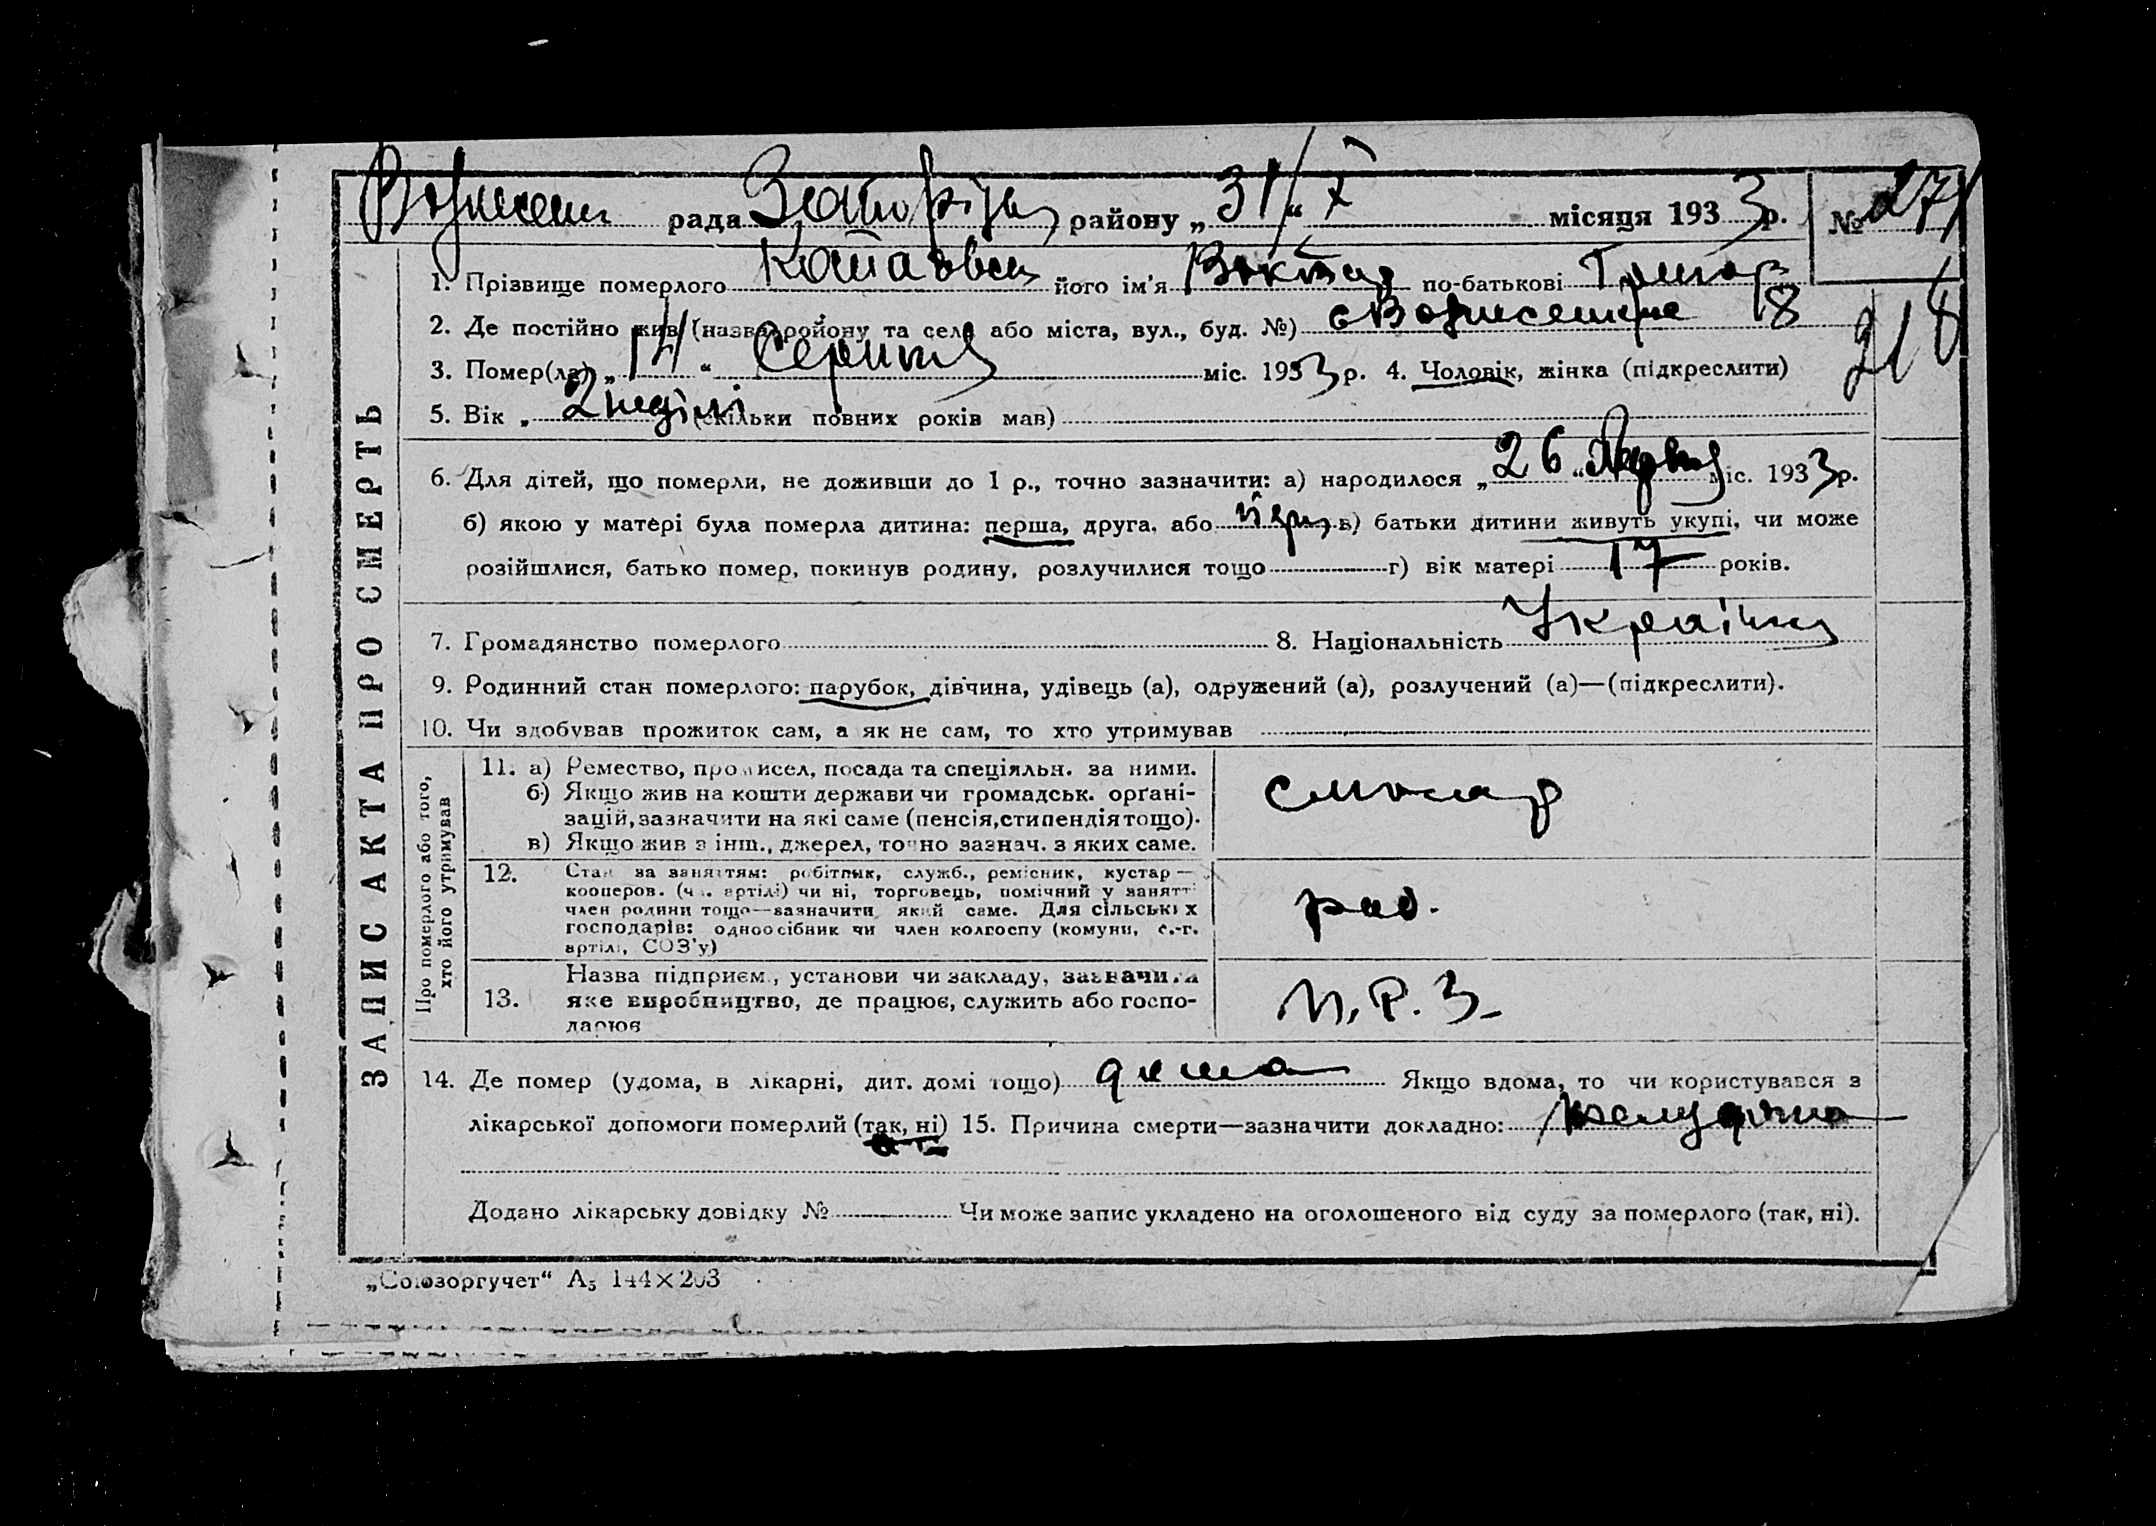 Вознесен рада Запоріж району „31/“ X місяця 1933 р. № 271
1. Прізвище померлого його ім'я Віктор по-батькові Григор
218
2. Де постійно жив (назва району та села або міста, вул., буд. №) с Вознесенка 18
3. Помер(ла) „14“ Серпня міс. 1933 р. 4. Чоловік, жінка (підкреслити)
5. Вік „ 2 неділі (скільки повних років мав)
6. Для дітей, що померли, не доживши до 1 р., точно зазначити: а) народилося „26“ міс. 1933 р.
б) якою у матері була померла дитина: перша, друга, або перш в) батьки дитини живуть укупі, чи може
розійшлися, батько помер, покинув родину, розлучилися тощо г) вік матері 17 років.
7. Громадянство померлого 8. Національність Українц
9. Родинний стан померлого: парубок, дівчина, удівець (а), одружений (а), розлучений (а)—(підкреслити).
10. Чи здобував прожиток сам, а як не сам, то хто утримував
ЗАПИС АКТА ПРО СМЕРТЬ
Про померлого або того,
хто його утримував
11. а) Ремество, промисел, посада та спеціяльн. за ними.
б) Якщо жив на кошти держави чи громадськ. орґані-
зацій, зазначити на які саме (пенсія, стипендія тощо).
в) Якщо жив з інш., джерел, точно зазнач. з яких саме.
столяр
12. Стан за заняттям: робітник, служб., ремісник, кустар—
кооперов. (чл. артілі) чи ні, торговець, помічний у занятті
член родини тощо—зазначити який саме. Для сільських
господарів: одноосібник чи член колгоспу (комуни, с.-г.
артілі, СОЗ'у)
роб.
13. Назва підприєм., установи чи закладу, зазначити
яке виробництво, де працює, служить або госпо-
дарює
П. Р. З.
14. Де помер (удома, в лікарні, дит. домі тощо) дома Якщо вдома, то чи користувався з
лікарської допомоги померлий (так, ні) 15. Причина смерти—зазначити докладно:
Додано лікарську довідку № Чи може запис укладено на оголошеного від суду за померлого (так, ні).
„Союзоргучет“ А₅ 144×203